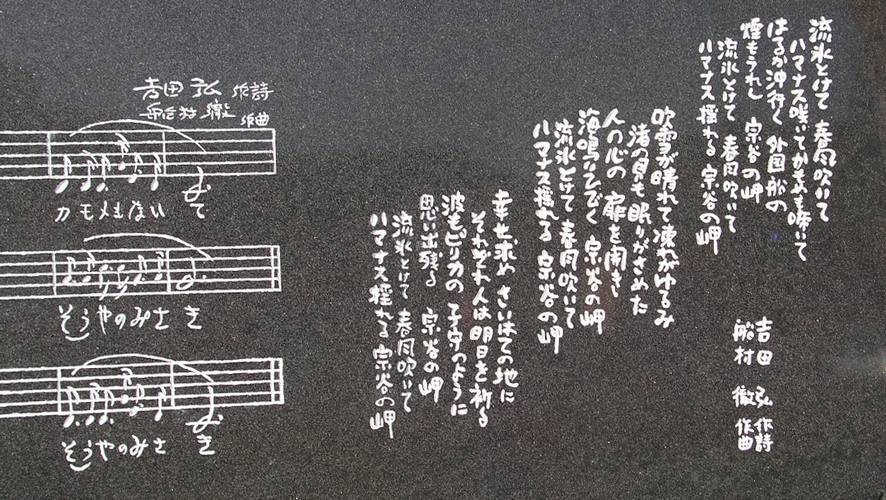 流氷とけて 春風吹いて
ハマナス咲いてかもめも啼いて
はるか沖行く 外国船の
煙もうれし 宗谷の岬
流氷とけて 春風吹いて
ハマナス揺れる 宗谷の岬
吹雪が晴れて 凍れがゆるみ
渚の貝も 眠りがさめた
人の心の 扉を開き
海鳴りひびく 宗谷の岬
流氷とけて 春風吹いて
ハマナス揺れる 宗谷の岬
幸せ求め さいはての地に
それぞれ人は 明日を祈る
波もピリカの 子守のように
思い出残る 宗谷の岬
流氷とけて 春風吹いて
ハマナス揺れる 宗谷の岬
吉田 弘 作詩
船村 徹 作曲
吉田 弘 作詩
船村 徹 作曲
カモメもない て
そうやのみさ き
そうやのみさ き